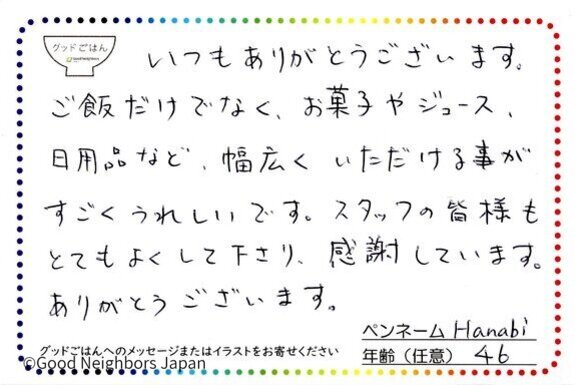 グッドごはん
いつもありがとうございます。
ご飯だけでなく、お菓子やジュース、
日用品など、幅広くいただける事が
すごくうれしいです。スタッフの皆様も
とてもよくして下さり、感謝しています。
ありがとうございます。
ペンネーム Hanabi
グッドごはんへのメッセージまたはイラストをお寄せください
年齢（任意） 46
©Good Neighbors Japan